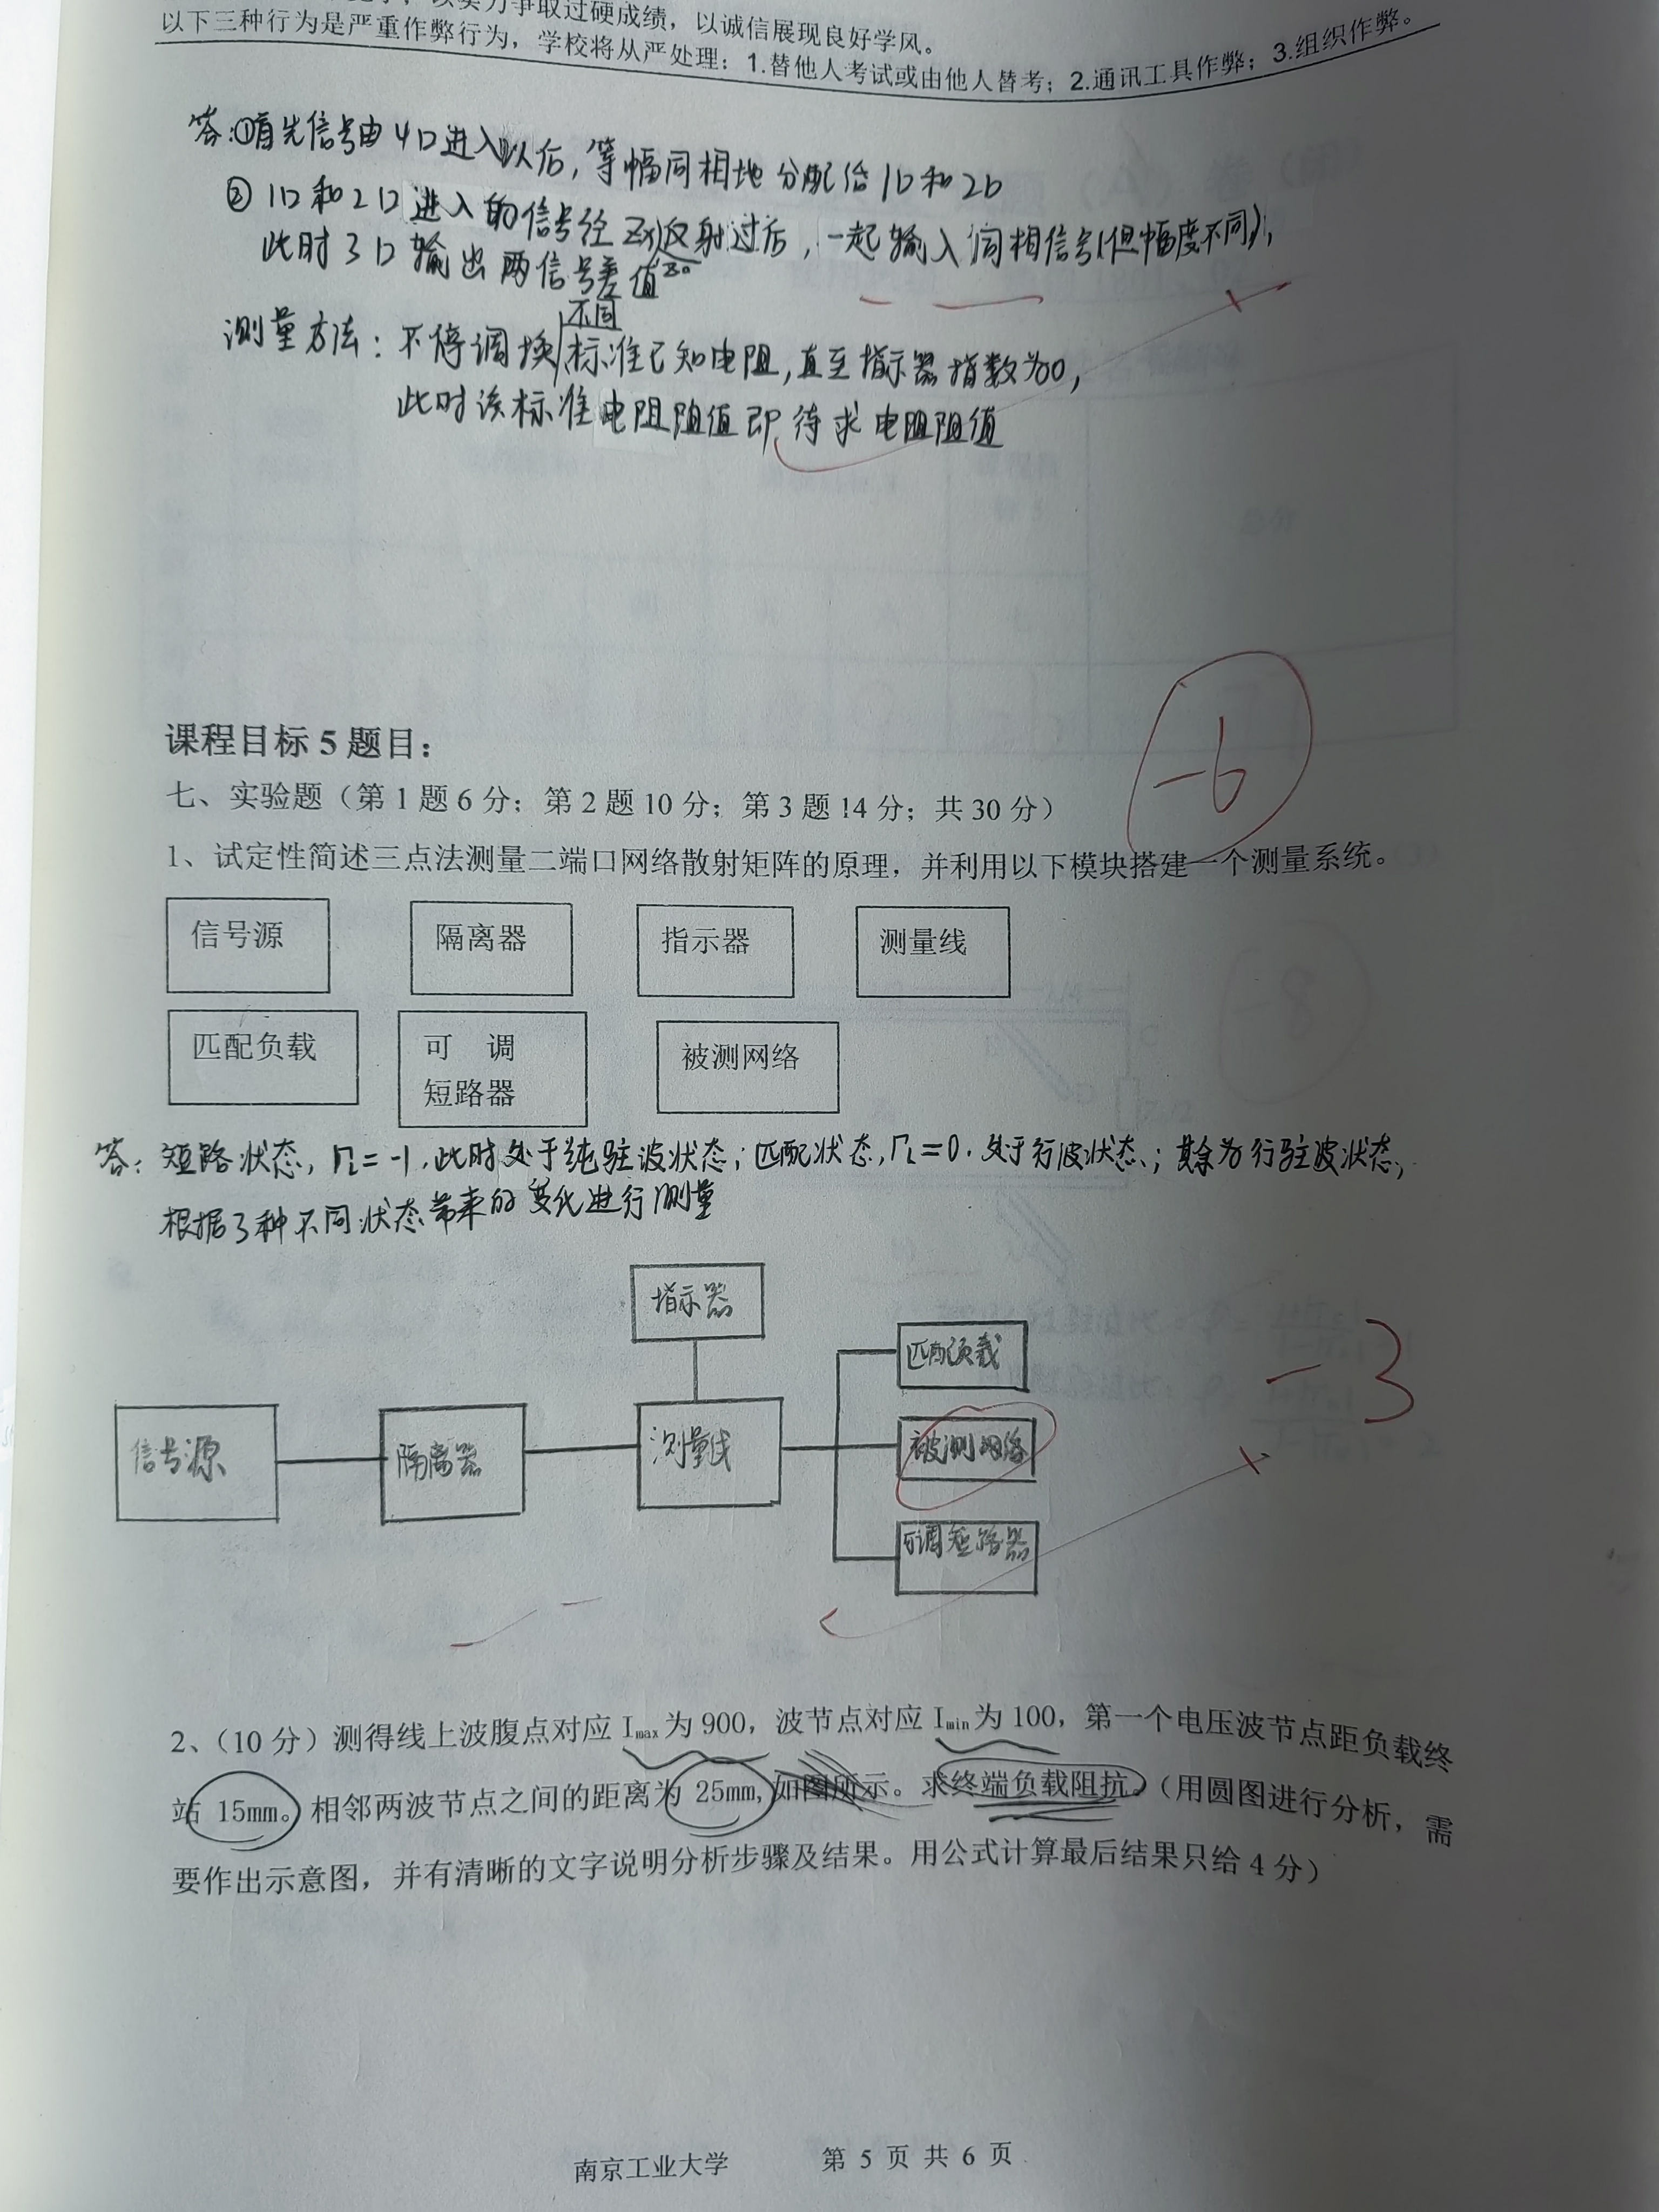 争取过硬成绩，以诚信展现良好学风。
以下三种行为是严重作弊行为，学校将从严处理：1.替他人考试或由他人替考；2.通讯工具作弊；3.组织作弊。
答：①首先信号由4口进入以后，等幅同相地分配给1口和2口
② 1口和2口进入的信号经Zx反射过后，一起输入同相信号(但幅度不同)，
Z0
此时3口输出两信号差值
不同
测量方法：不停调换标准已知电阻，直至指示器指数为0，
此时该标准电阻阻值即待求电阻阻值
-6
课程目标 5 题目：
七、实验题（第 1 题 6 分；第 2 题 10 分；第 3 题 14 分；共 30 分）
1、试定性简述三点法测量二端口网络散射矩阵的原理，并利用以下模块搭建一个测量系统。
信号源 隔离器 指示器 测量线
匹配负载 可 调 被测网络
短路器
答：短路状态，Γ_L=-1，此时处于纯驻波状态；匹配状态，Γ_L=0，处于行波状态；其余为行驻波状态，
根据3种不同状态带来的变化进行测量
指示器
匹配负载
-3
信号源 隔离器 测量线 被测网络
可调短路器
2、（10 分）测得线上波腹点对应 Imax 为 900，波节点对应 Imin 为 100，第一个电压波节点距负载终
站 15mm。相邻两波节点之间的距离为 25mm，如图所示。求终端负载阻抗。（用圆图进行分析，需
要作出示意图，并有清晰的文字说明分析步骤及结果。用公式计算最后结果只给 4 分）
南京工业大学 第 5 页 共 6 页